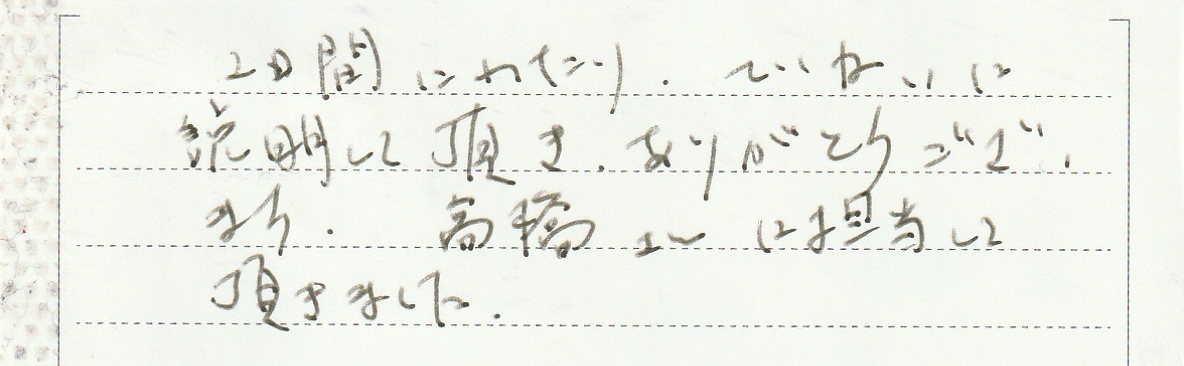 2日間にわたり、ていねいに
説明して頂き、ありがとうござい
ます。高橋さんに担当して
頂きました。